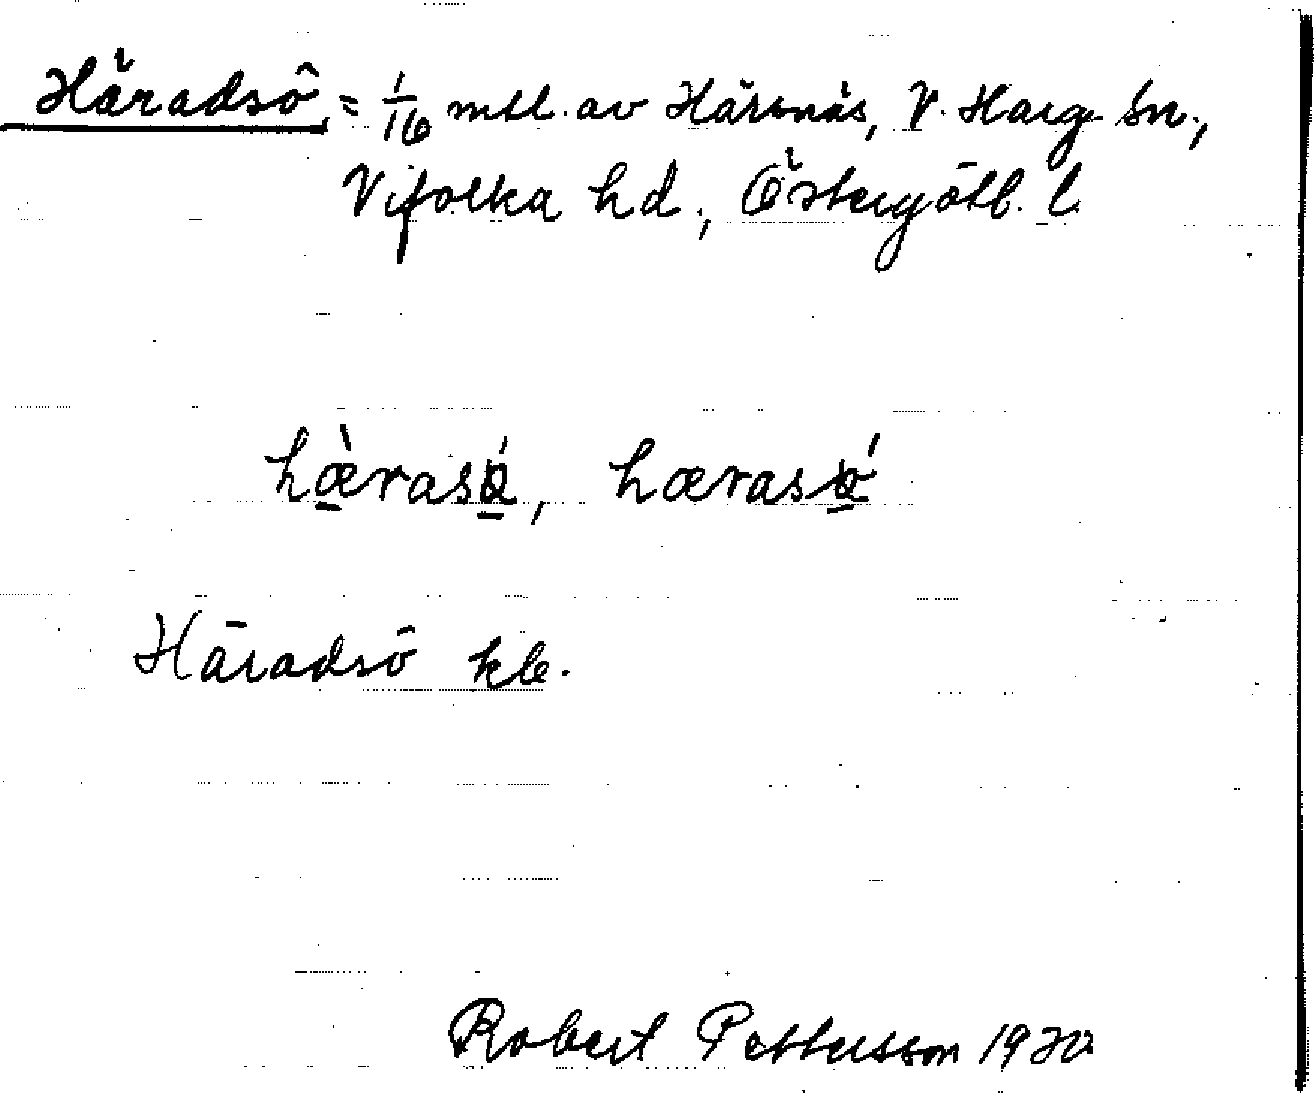 Häradsö, = 1/16 mtl. av Härsnäs, V. Harg sn.,
Vifolka hd., Östergötl. l.
hæ̀rasǿ, hærasǿ
Häradsö kb.
Robert Pettersson 1930